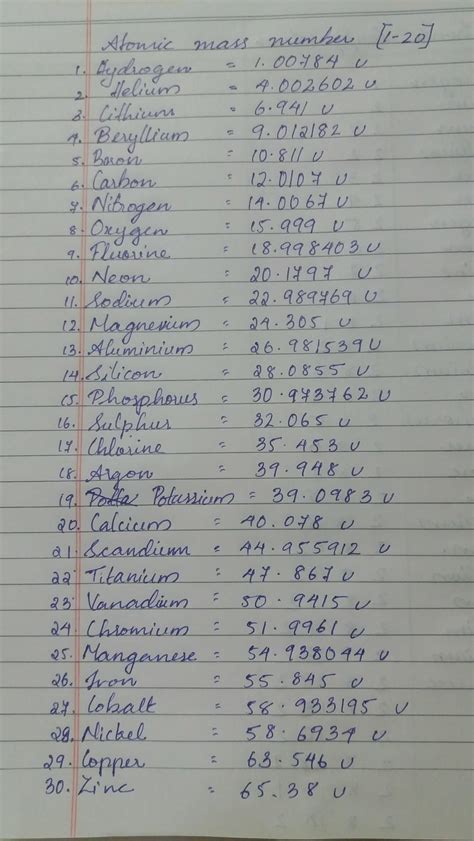 Atomic mass number [1-20]
1. Hydrogen = 1.00784 u
2. Helium = 4.002602 u
3. Lithium = 6.941 u
4. Beryllium = 9.012182 u
5. Boron = 10.811 u
6. Carbon = 12.0107 u
7. Nitrogen = 14.0067 u
8. Oxygen = 15.999 u
9. Fluorine = 18.998403 u
10. Neon = 20.1797 u
11. Sodium = 22.989769 u
12. Magnesium = 24.305 u
13. Aluminium = 26.981539 u
14. Silicon = 28.0855 u
15. Phosphorus = 30.973762 u
16. Sulphur = 32.065 u
17. Chlorine = 35.453 u
18. Argon = 39.948 u
19. Potassium = 39.0983 u
20. Calcium = 40.078 u
21. Scandium = 44.955912 u
22. Titanium = 47.867 u
23. Vanadium = 50.9415 u
24. Chromium = 51.9961 u
25. Manganese = 54.938044 u
26. Iron = 55.845 u
27. Cobalt = 58.933195 u
28. Nickel = 58.6934 u
29. Copper = 63.546 u
30. Zinc = 65.38 u